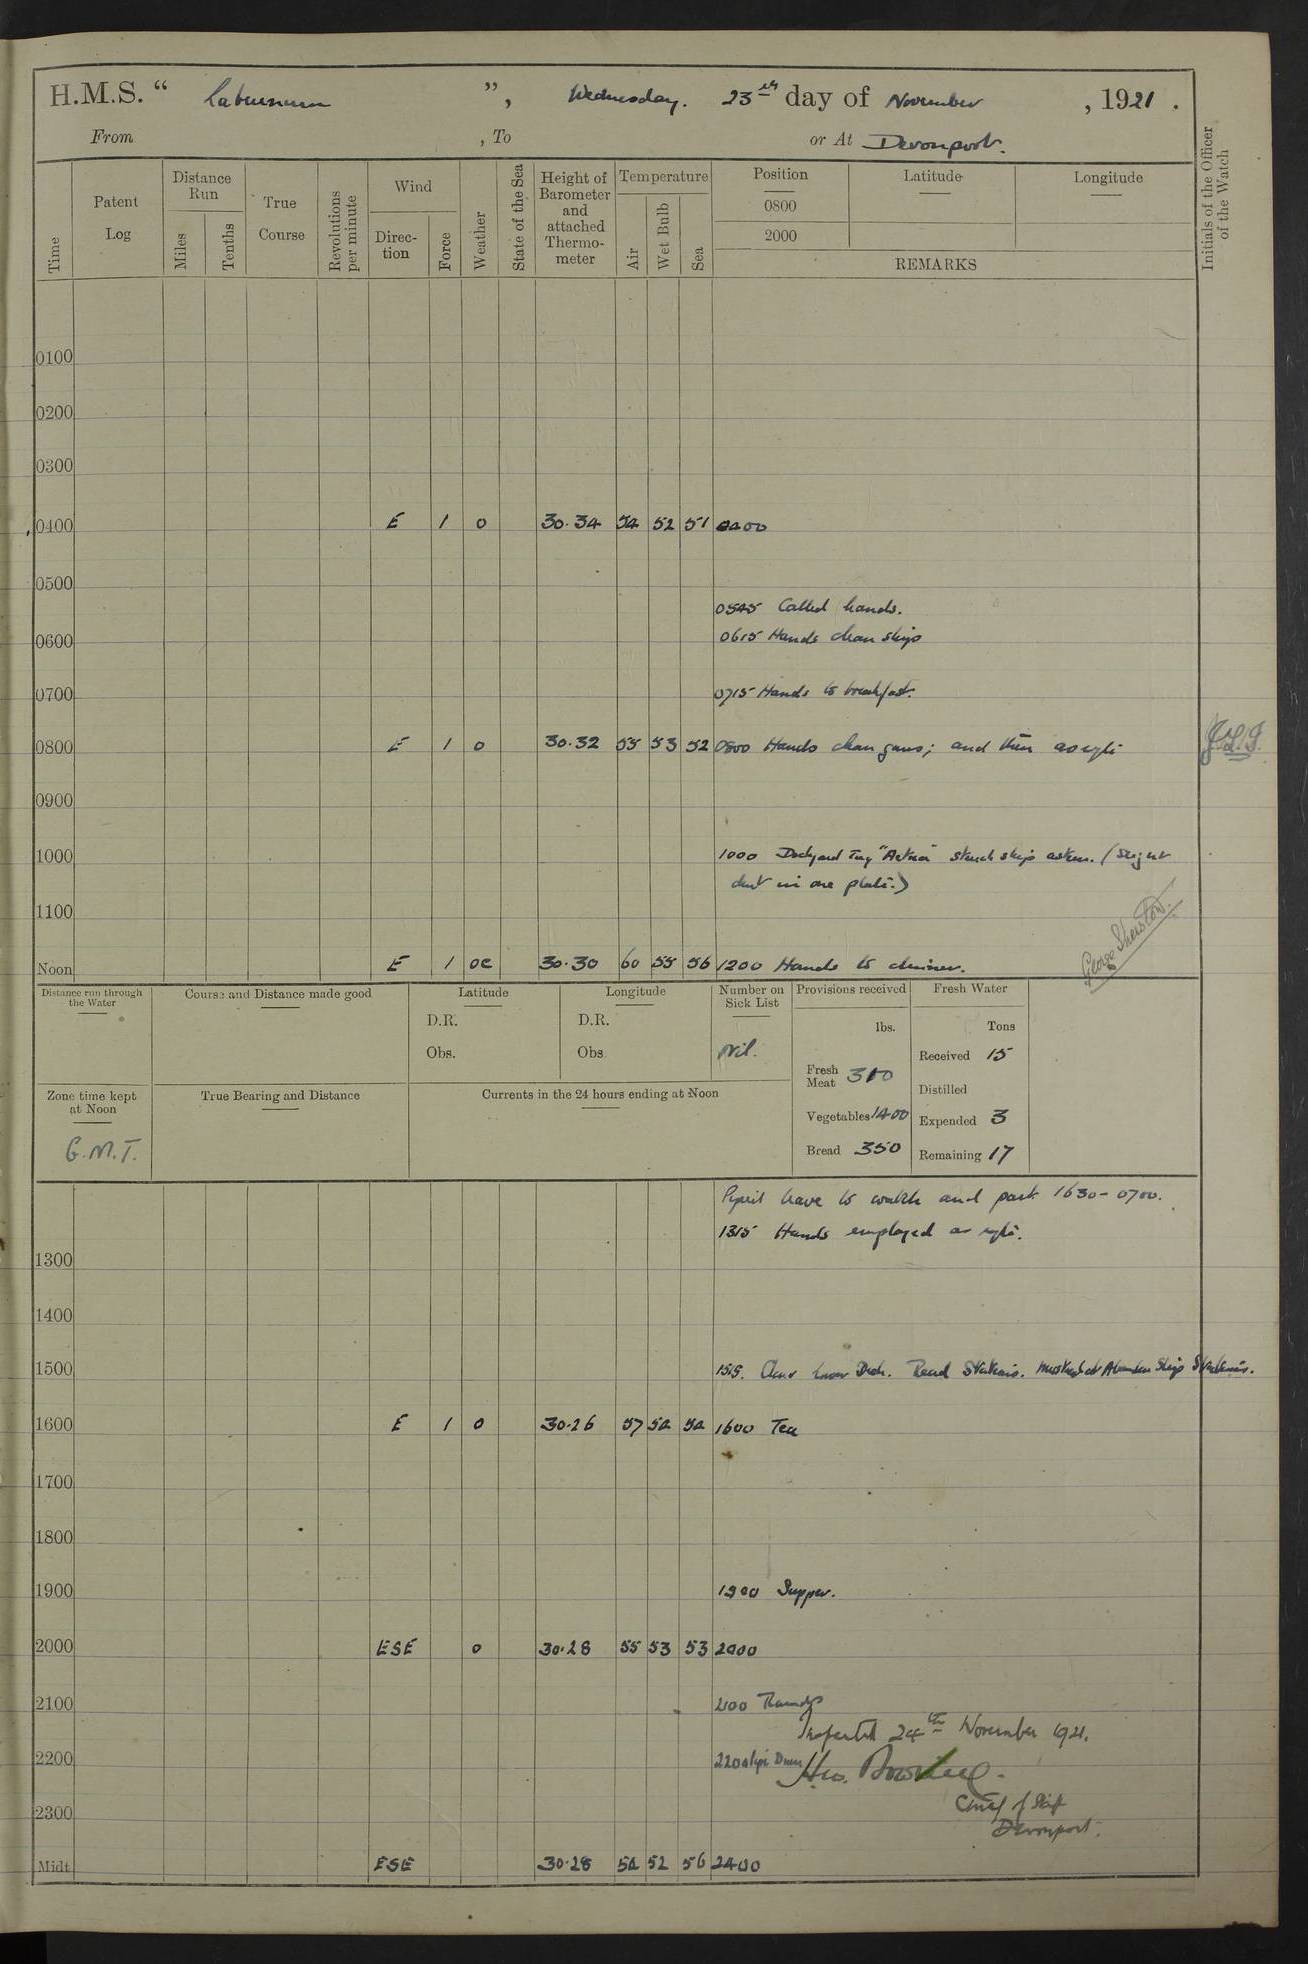 H.M.S. “ Laburnum ”, Wednesday. 23rd day of November, 1921.
From , To or At Devonport.
Time
Patent Log
Distance Run
Miles
Tenths
True Course
Revolutions per minute
Wind
Direc-tion
Force
Weather
State of the Sea
Height of Barometer and attached Thermo-meter
Temperature
Air
Wet Bulb
Sea
Position
0800
2000
Latitude
Longitude
REMARKS
Initials of the Officer of the Watch
0100
0200
0300
0400 E 1 o 30.34 54 52 51 0400
0500
0545 Called hands.
0600 0615 Hands clean ship
0700 0715 Hands to breakfast.
0800 E 1 o 30.32 55 53 52 0800 Hands clean guns; and then as reqte
0900
1000 1000 Dockyard Tug struck ship astern. (Slight
dent in one plate.)
1100
Noon E 1 oc 30.30 60 55 56 1200 Hands to dinner.
Distance run through the Water
Course and Distance made good
Latitude
D.R.
Obs.
Longitude
D.R.
Obs
Number on Sick List
Nil.
Provisions received
lbs.
Fresh Meat 310
Vegetables 1400
Bread 350
Fresh Water
Tons
Received 15
Distilled
Expended 3
Remaining 17
Zone time kept at Noon
G.M.T.
True Bearing and Distance
Currents in the 24 hours ending at Noon
leave to watch and part 1630-0700.
1315 Hands employed as reqte.
1300
1400
1500 1515. Clear Lower Deck. Read Stations. Mustered at Abandon Ship Stations.
1600 E 1 o 30.26 57 54 54 1600 Tea
1700
1800
1900 1900 Supper.
2000 ESE o 30.28 55 53 53 2000
2100 2100 Rounds
Inspected 24th November 1921.
2200 2200 Pipe Down
Chief of Staff
2300 Devonport.
Midt. ESE 30.28 54 52 56 2400